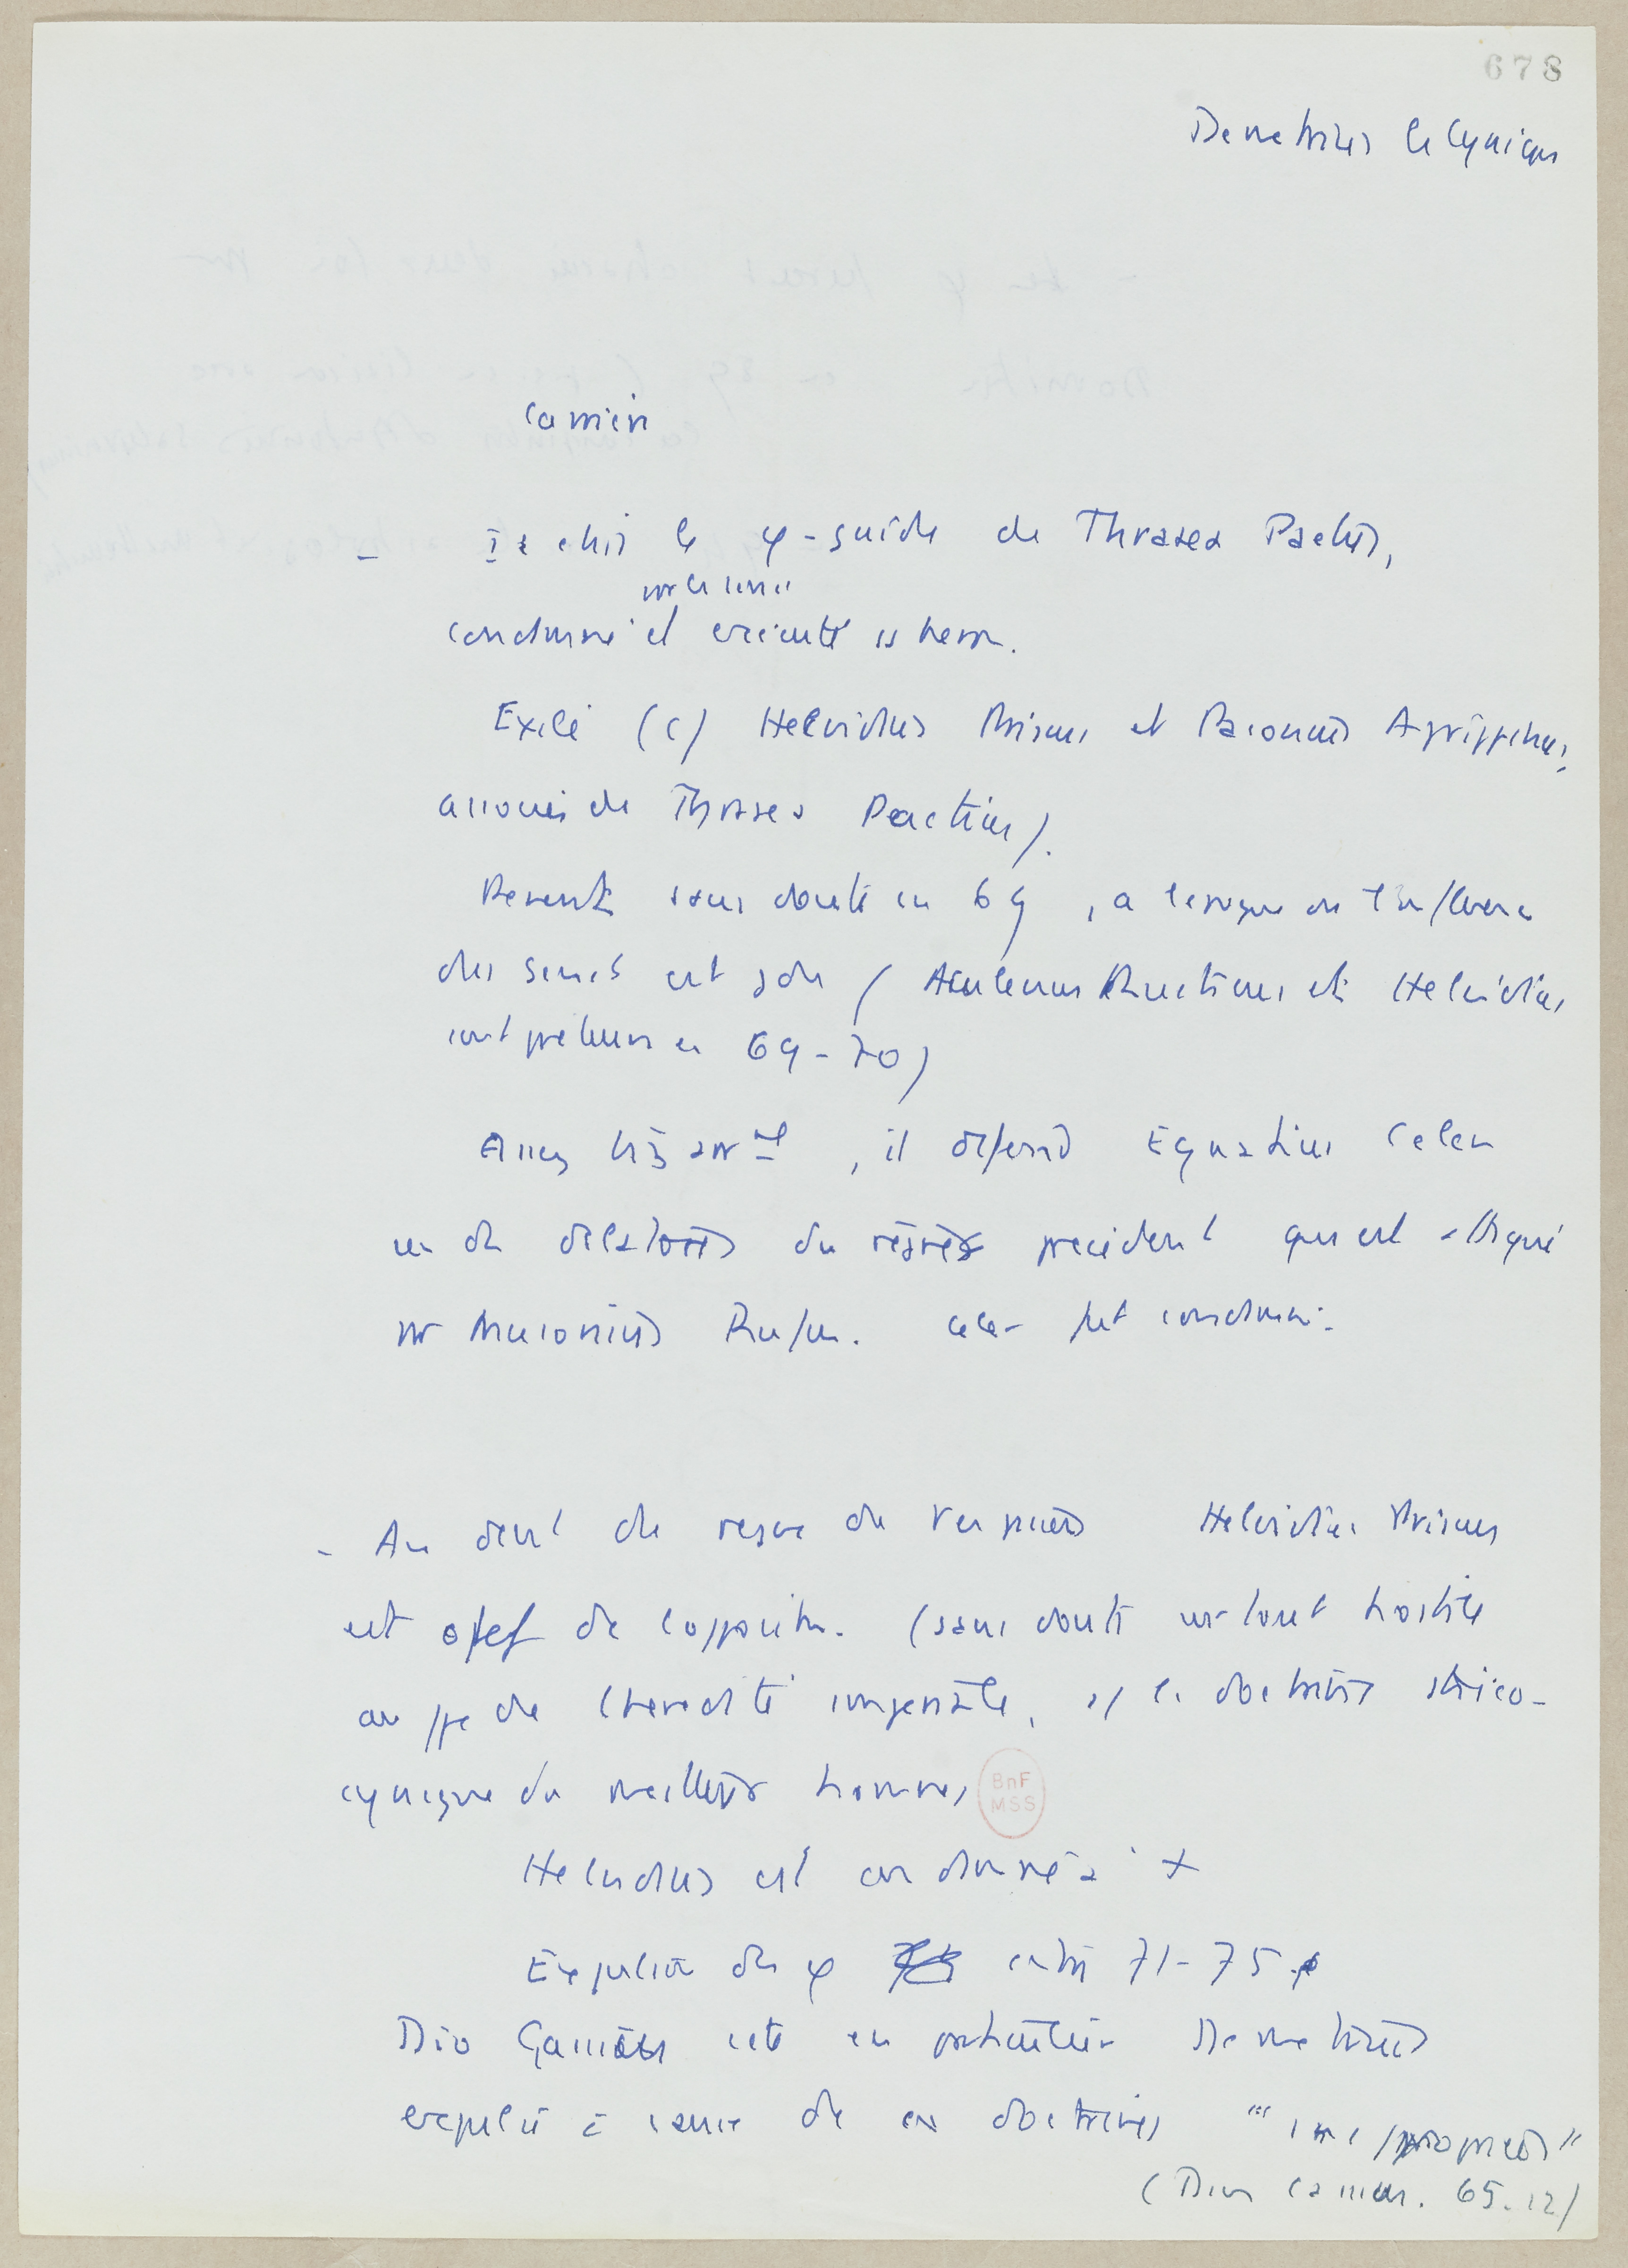 678
Demetrius le Cynique
carrière
- Il a été le φ-guide de Thrasea Paetus,
par le sénat
condamné et exécuté ss Néron.
Exilé (c/ Helvidius Priscus et Paconius Agrippinus,
associés de Thrasea Paetus).
Revenu sans doute en 69, à l'époque où l'influence
du sénat est gde (Arulenus Rusticus et Helvidius
sont préteurs en 69-70)
Assez bizarrt, il défend Egnatius Celer
un des délateurs du régime précédent qui est attaqué
par Musonius Rufus. Celer fut condamné.
- Au début du règne de Vespasien Helvidius Priscus
est chef de l'opposition. (sans doute surtout hostile
au ppe de l'hérédité impériale, c/ la doctrine stoïco-
cynique du meilleur homme)
BnF
MSS
Helvidius est condamné à +
Expulsion des φ entre 71-75.
Dio Cassius cite en particulier Demetrius
expulsé à cause de ces doctrines
(Dion Cassius. 65.12)